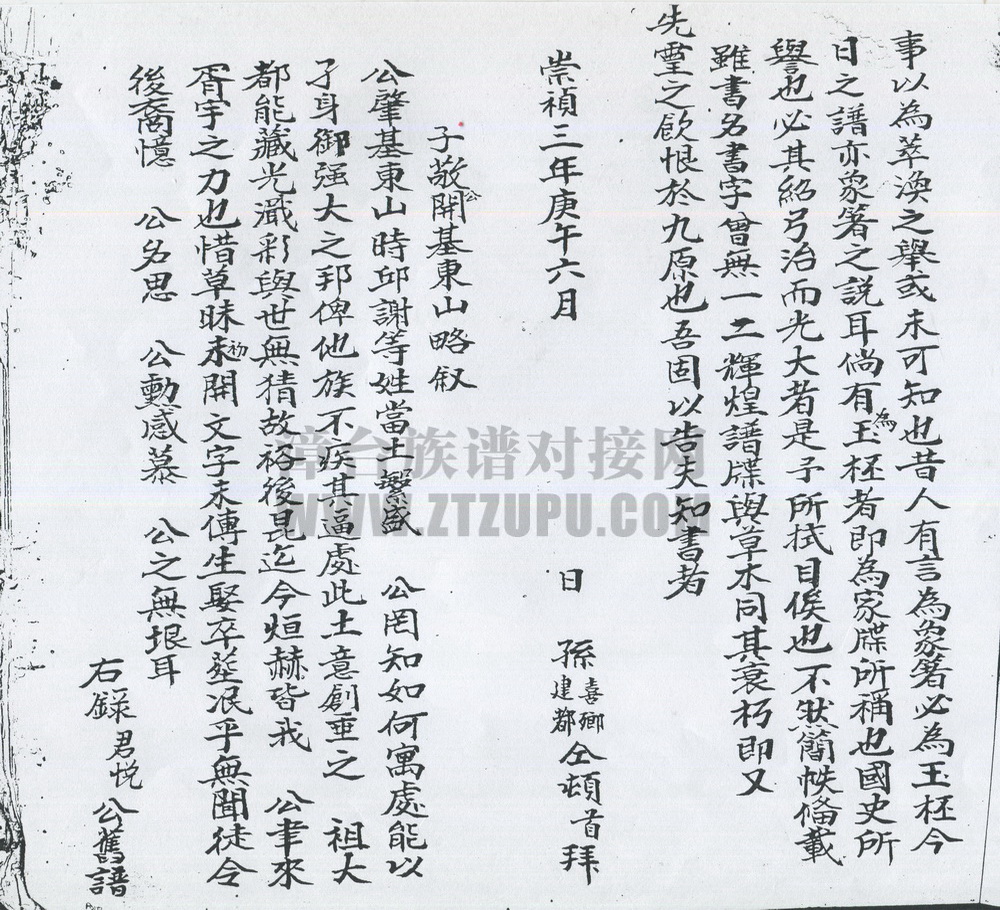 事以為萃渙之舉或未可知也昔人有言為象箸必為玉杯今
日之譜亦象箸之説耳倘有為玉杯者即為家牒所稱也國史所
譽也必其紹弓冶而光大者是予所拭目俟也不然簡帙俻載
雖書名書字曾無一二輝煌譜牒與草木同其衰朽即又
先靈之飲恨於九原也吾固以告夫知書者
崇禎三年庚午六月 日 孫喜鄉建都仝頓首拜
子敬公開基東山略叙
公肇基東山時邱謝等姓當土繁盛 公罔知如何寓處能以
孑身御强大之邦俾他族不疾其逼處此土意創垂之 祖大
都能藏光瀐彩與世無猜故裕後昆迄今烜赫皆我 公聿來
胥宇之力也惜草昧初未開文字未傳生娶卒塟泯乎無聞徒令
後裔憶 公名思 公動感慕 公之無垠耳
右錄君悦公舊譜
章台族谱对接网
WWW.ZTZUPU.COM